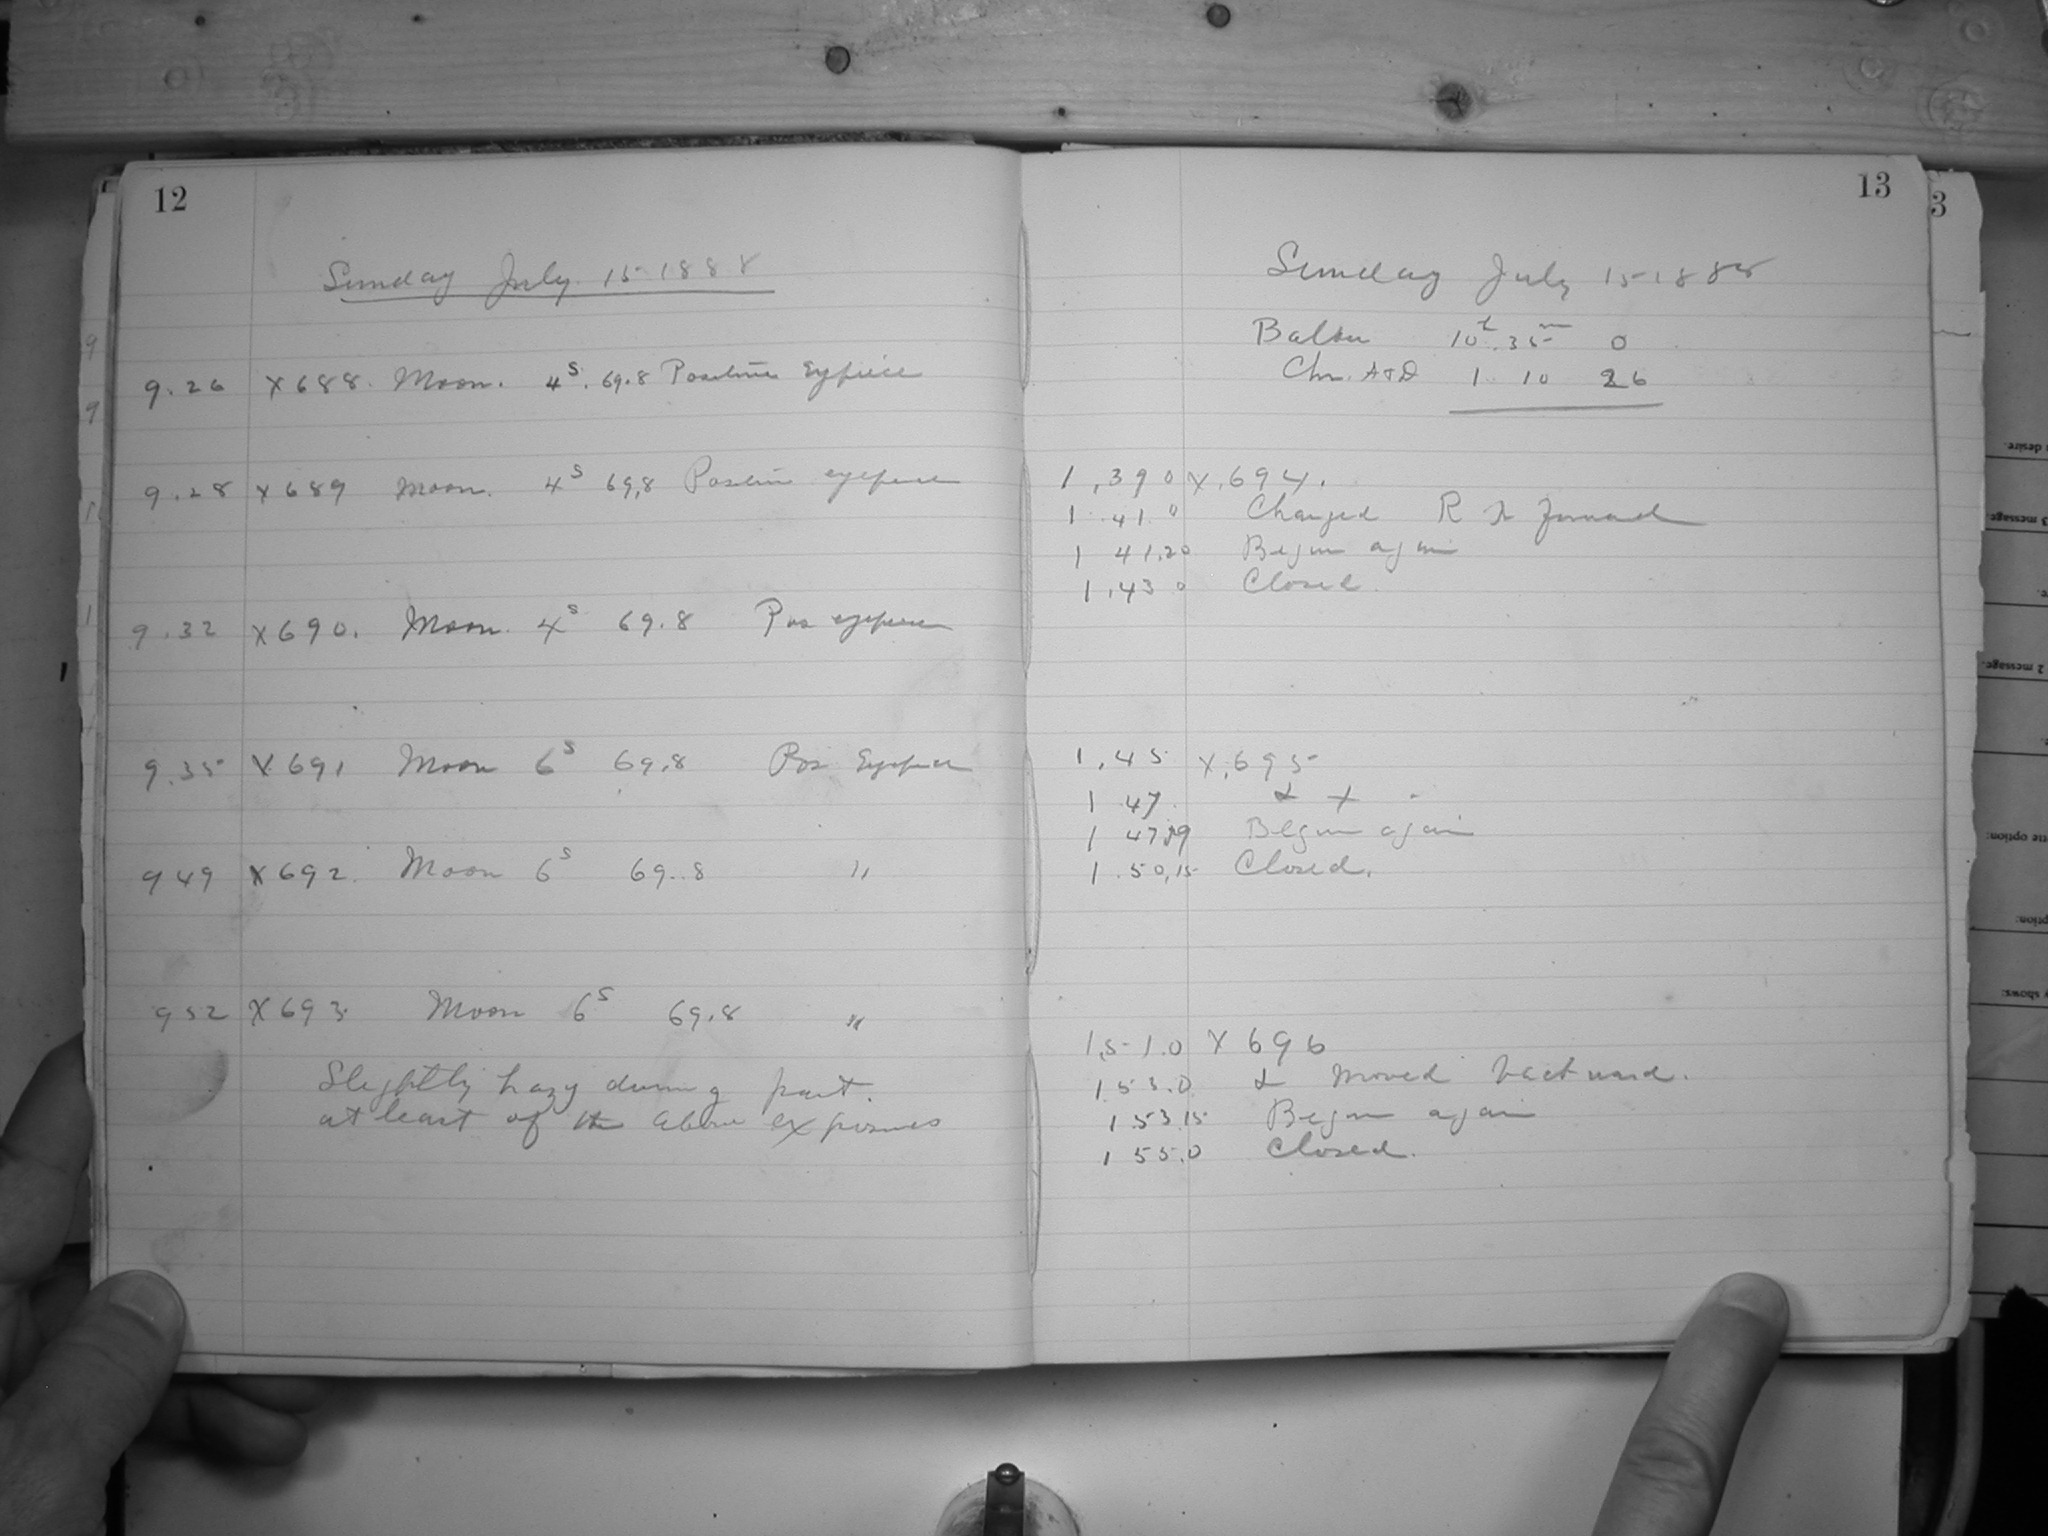 12
Sunday July 15 1888
9.26 X688. Moon. 4s. 69.8 Positive Eyepiece
9.28 X689 Moon. 4s 69.8 Positive eyepiece
9.32 X690. Moon. 4s 69.8 Pos eyepiece
9.35 X.691 Moon 6s 69.8 Pos Eyepiece
9 49 X692. Moon 6s 69.8 "
9 52 X693. Moon 6s 69.8 "
Slightly hazy during part.
at least of the above exposures
13
Sunday July 15 1888
10h.35m 0
Chr. 1 10 26
1.390 X.694.
1 41.0 Changed forward
1 41.20 Begun again
1.43 0 Closed.
1.45 X.695
1 47.
Begun again
1.50.15 Closed.
1.51.0 X696
1 53.0 moved backward.
1 53.15 Begun again
1 55.0 Closed.
desire.
3 message.
2 message.
option:
option:
shows: